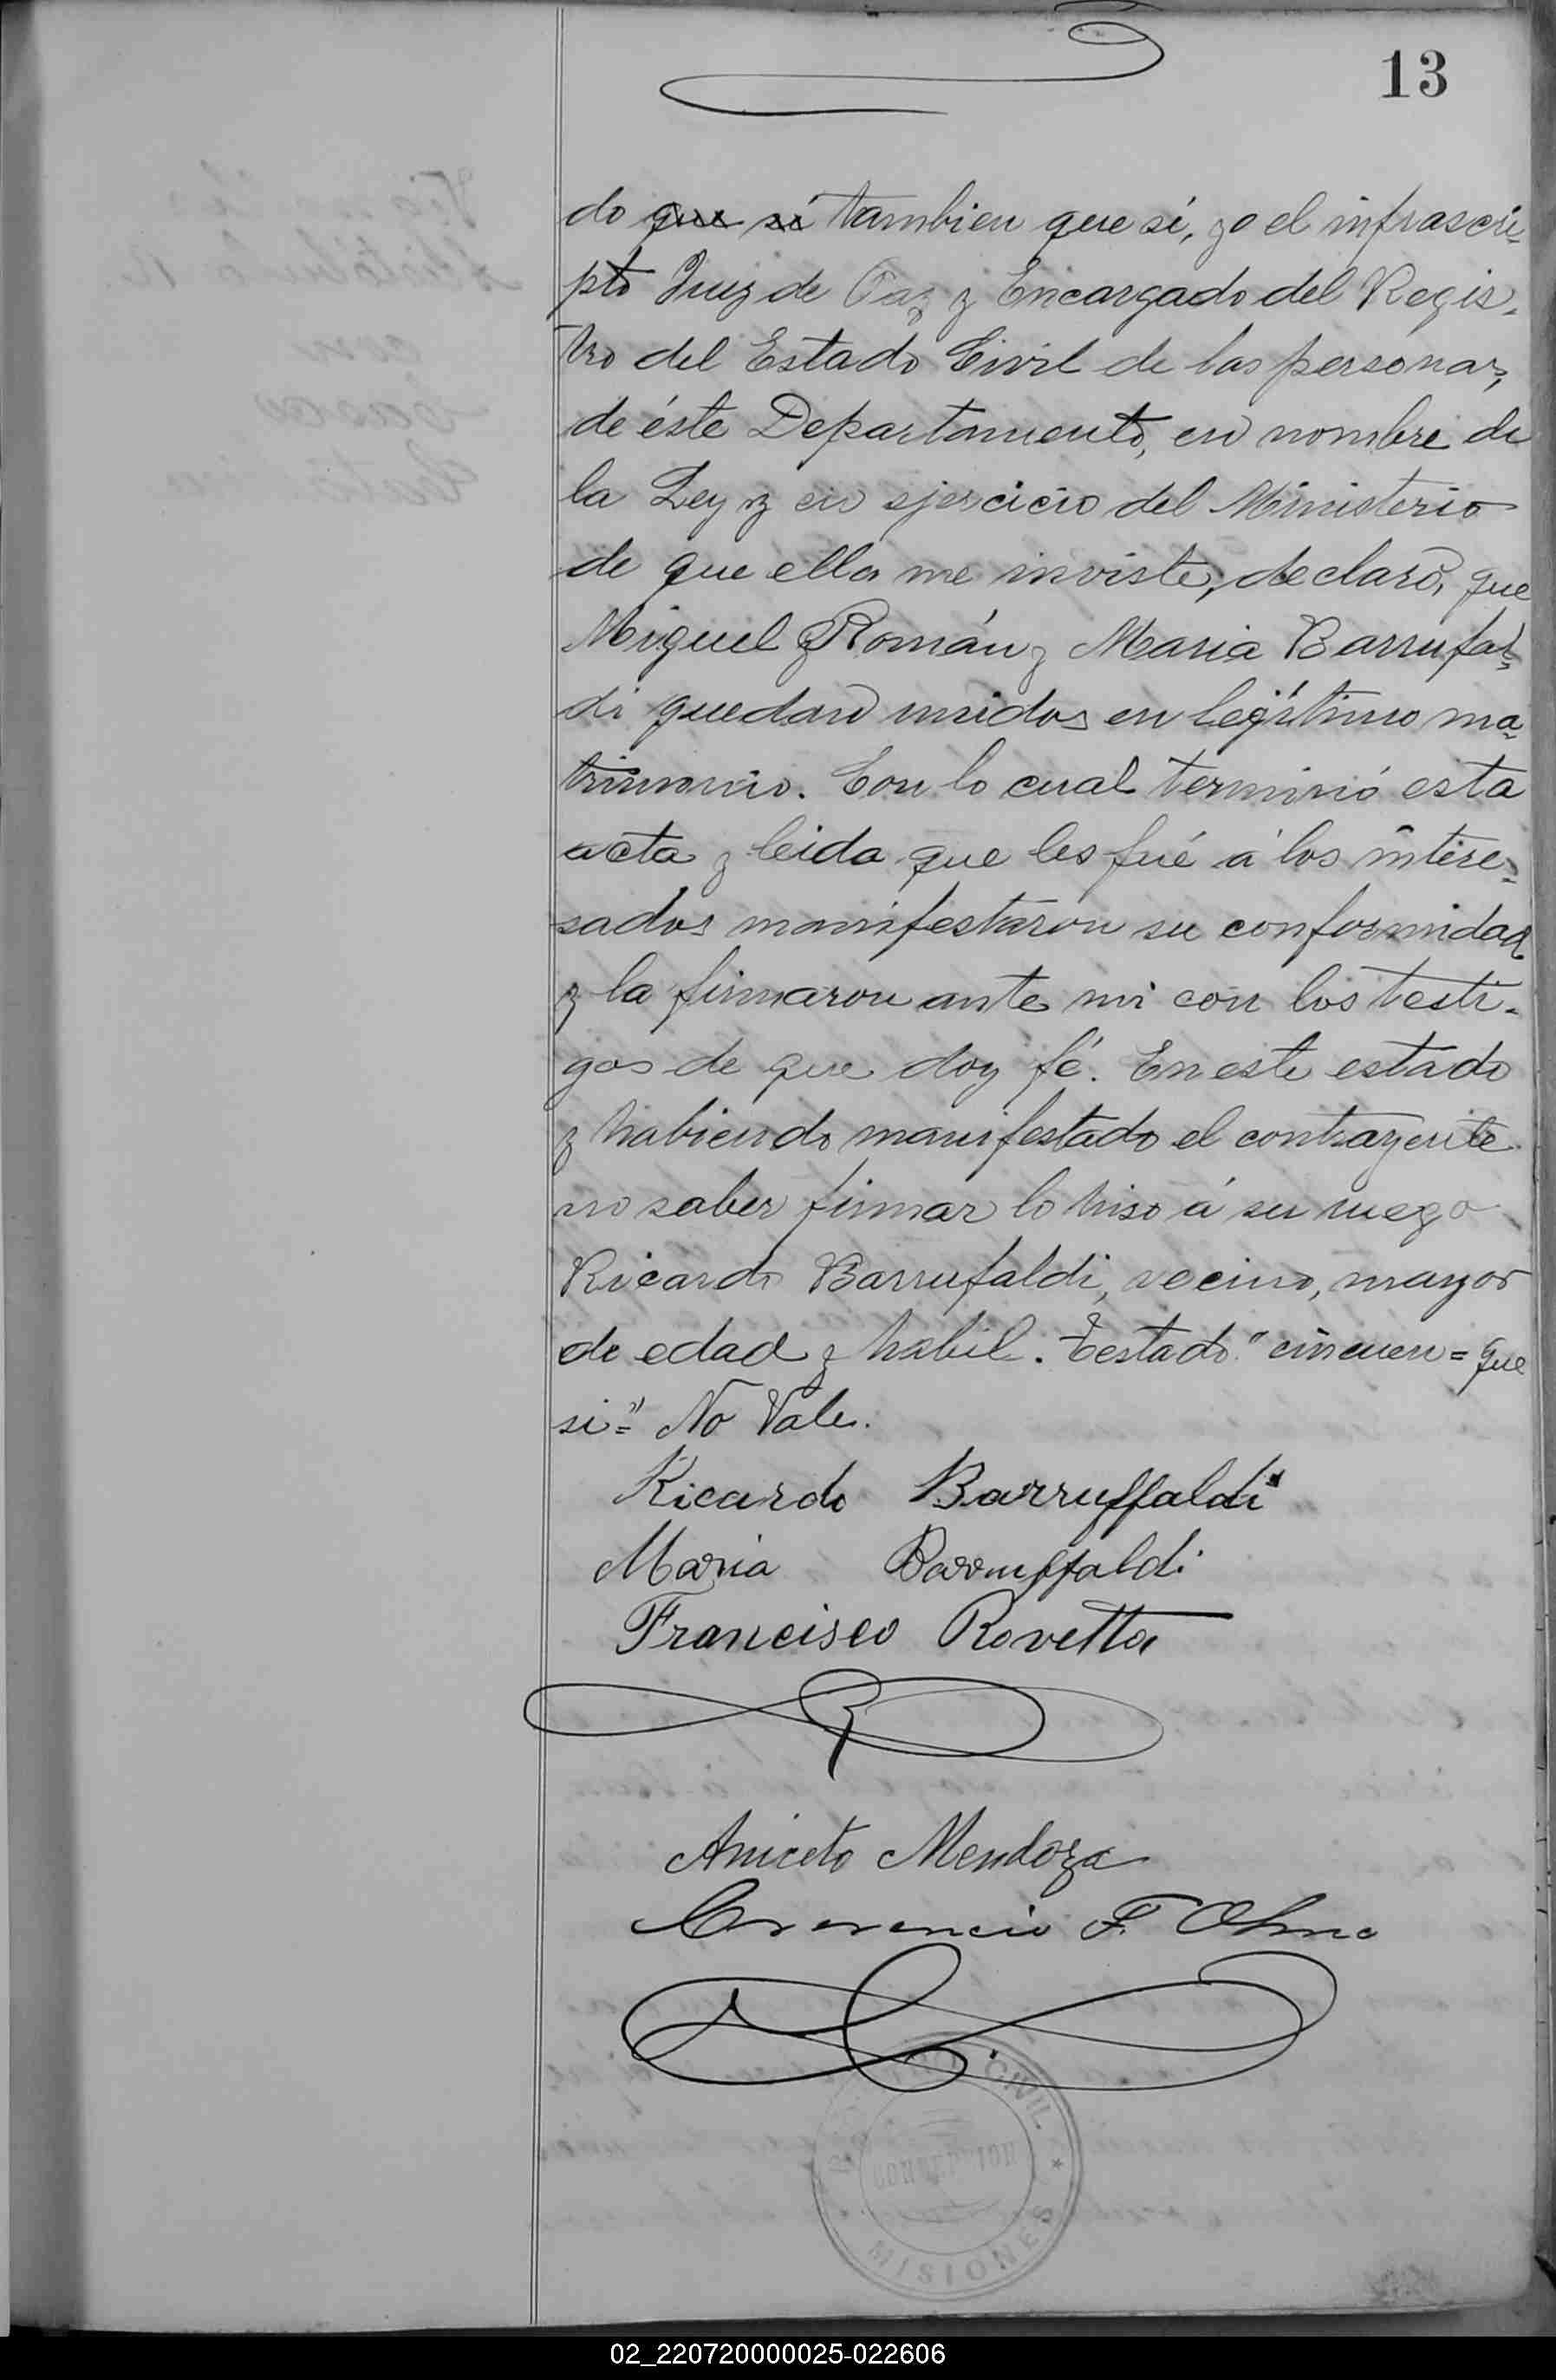 13
do que si tambien que sí, yo el infrascri-
pto Juez de Paz y Encargado del Regis-
tro del Estado Civil de las personas,
de éste Departamento, en nombre de
la Ley y en ejercicio del Ministerio
de que ella me inviste, declaro, que
Miguel Román y Maria Barrufal-
di quedan unidos en legítimo ma-
trimonio. Con lo cual terminó esta
acta y leida que les fué á los intere-
sados manifestaron su conformidad
y la firmaron ante mi con los testi-
gos de que doy fé. En este estado
y habiendo manifestado el contrayente
no saber firmar lo hiso á su ruego
Ricardo Barrufaldi, vecino, mayor
de edad y habil. Testado "cincuen = que
si=" No Vale.
Ricardo Barruffaldi
Maria Barruffaldi
Francisco Rovetta
Aniceto Mendoza
F.
CIVIL
MISIONES
02_220720000025-022606